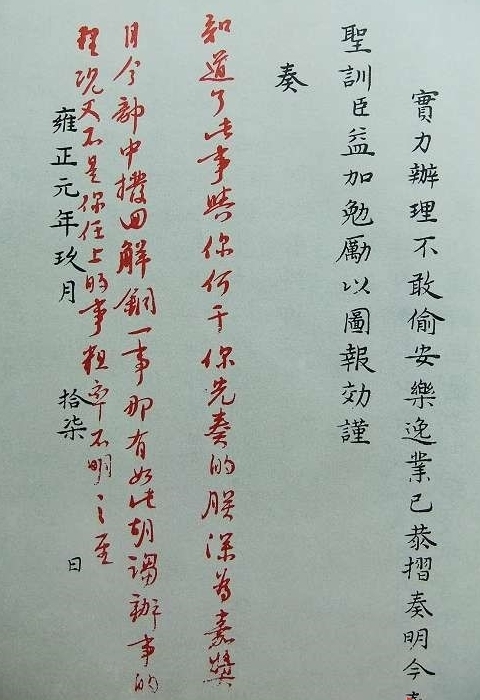 實力辦理不敢偷安樂逸業已恭摺奏明今
聖訓臣益加勉勵以圖報効謹
奏
知道了此事與你何干你先奏的朕深為嘉獎
目今部中撥回解銅一事那有如此胡謅辦事的
理況又不是你任上的事粗率不明之至
雍正元年玖月 拾柒 日